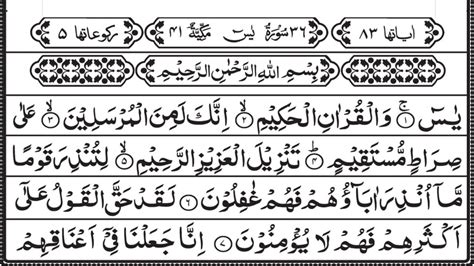 اٰیاتها ٨٣ ٣٦ سُوْرَةُ یٰسٓ مَكِّیَّةٌ ٤١ رکوعاتها ٥
بِسْمِ اللّٰهِ الرَّحْمٰنِ الرَّحِیْمِ
یٰسٓ ۝١ وَالْقُرْاٰنِ الْحَكِیْمِ ۝٢ اِنَّكَ لَمِنَ الْمُرْسَلِیْنَ ۝٣ عَلٰی
صِرَاطٍ مُّسْتَقِیْمٍ ۝٤ تَنْزِیْلَ الْعَزِیْزِ الرَّحِیْمِ ۝٥ لِتُنْذِرَ قَوْمًا
مَّاۤ اُنْذِرَ اٰبَآؤُهُمْ فَهُمْ غٰفِلُوْنَ ۝٦ لَقَدْ حَقَّ الْقَوْلُ عَلٰۤی
اَكْثَرِهِمْ فَهُمْ لَا یُؤْمِنُوْنَ ۝٧ اِنَّا جَعَلْنَا فِیْۤ اَعْنَاقِهِمْ